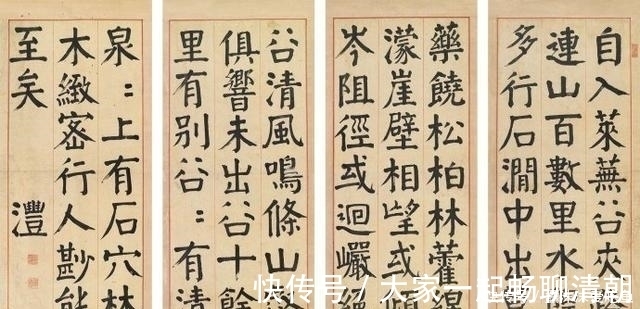 自入萊蕪谷夾
連山百數里水
多行石澗中出
藥饒松柏林藿
濛崖壁相望或傾
岑阻徑或迴巖
谷清風鳴條山
俱響未出谷十餘
里有別谷〻有清
泉〻上有石穴林
木緻密行人尠能
至矣
灃
快传号 / 大家一起畅聊清朝